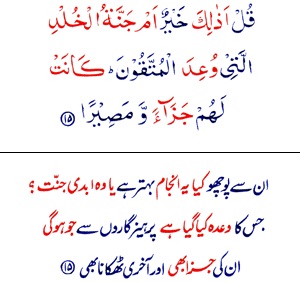 قُلْ اَذٰلِكَ خَيْرٌ اَمْ جَنَّةُ الْخُلْدِ
الَّتِىْ وُعِدَ الْمُتَّقُوْنَ ؕ كَانَتْ
لَهُمْ جَزَآءً وَّ مَصِيْرًا ﴿۱۵﴾
ان سے پوچھو کیا یہ انجام بہتر ہے یا وہ ابدی جنّت ؟
جس کا وعدہ کیا گیا ہے پرہیز گاروں سے جو ہوگی
ان کی جزا بھی اور آخری ٹھکانا بھی ﴿۱۵﴾